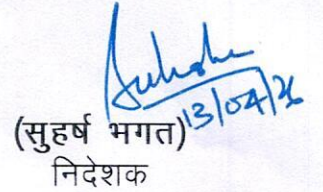 13/04/26
(सुहर्ष भगत)
निदेशक